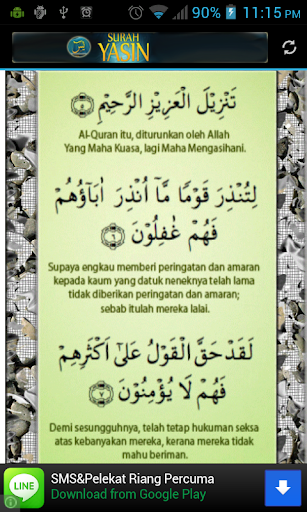 11:15 PM
SURAH
YASIN
تَنْزِيْلَ الْعَزِيْزِ الرَّحِيْمِ ۝٥
Al-Quran itu, diturunkan oleh Allah
Yang Maha Kuasa, lagi Maha Mengasihani.
لِتُنْذِرَ قَوْمًا مَّآ اُنْذِرَ اٰبَآؤُهُمْ
فَهُمْ غٰفِلُوْنَ ۝٦
Supaya engkau memberi peringatan dan amaran
kepada kaum yang datuk neneknya telah lama
tidak diberikan peringatan dan amaran;
sebab itulah mereka lalai.
لَقَدْ حَقَّ الْقَوْلُ عَلٰٓى اَكْثَرِهِمْ
فَهُمْ لَا يُؤْمِنُوْنَ ۝٧
Demi sesungguhnya, telah tetap hukuman seksa
atas kebanyakan mereka, kerana mereka tidak
mahu beriman.
LINE
SMS&Pelekat Riang Percuma
Download from Google Play